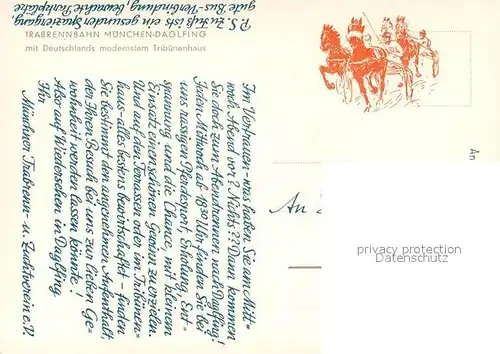 P.S. Zu Fuß ists ein gesunder Spaziergang,
gute Bus-Verbindung, bewachte Parkplätze
TRABRENNBAHN MÜNCHEN-DAGLFING
mit Deutschlands modernstem Tribünenhaus
Im Vertrauen - was haben Sie am Mitt=
woch Abend vor? Nichts?? Dann kommen
Sie doch zum Abendrennen nach Daglfing!
Jeden Mittwoch ab 18³⁰ Uhr finden Sie bei
uns rassigen Pferdesport, Erholung, Ent=
spannung und die Chance, mit kleinem
Einsatz einen schönen Gewinn zu erzielen.
Und auf den Terrassen oder im Tribünen=
haus - alles bestens bewirtschaftet - finden
Sie bestimmt den angenehmen Aufenthalt,
der Ihren Besuch bei uns zur lieben Ge=
wohnheit werden lassen könnte!
Also auf Wiedersehen in Daglfing
Ihr
Münchner Trabrenn- u. Zuchtverein e.V.
An
An
privacy protection